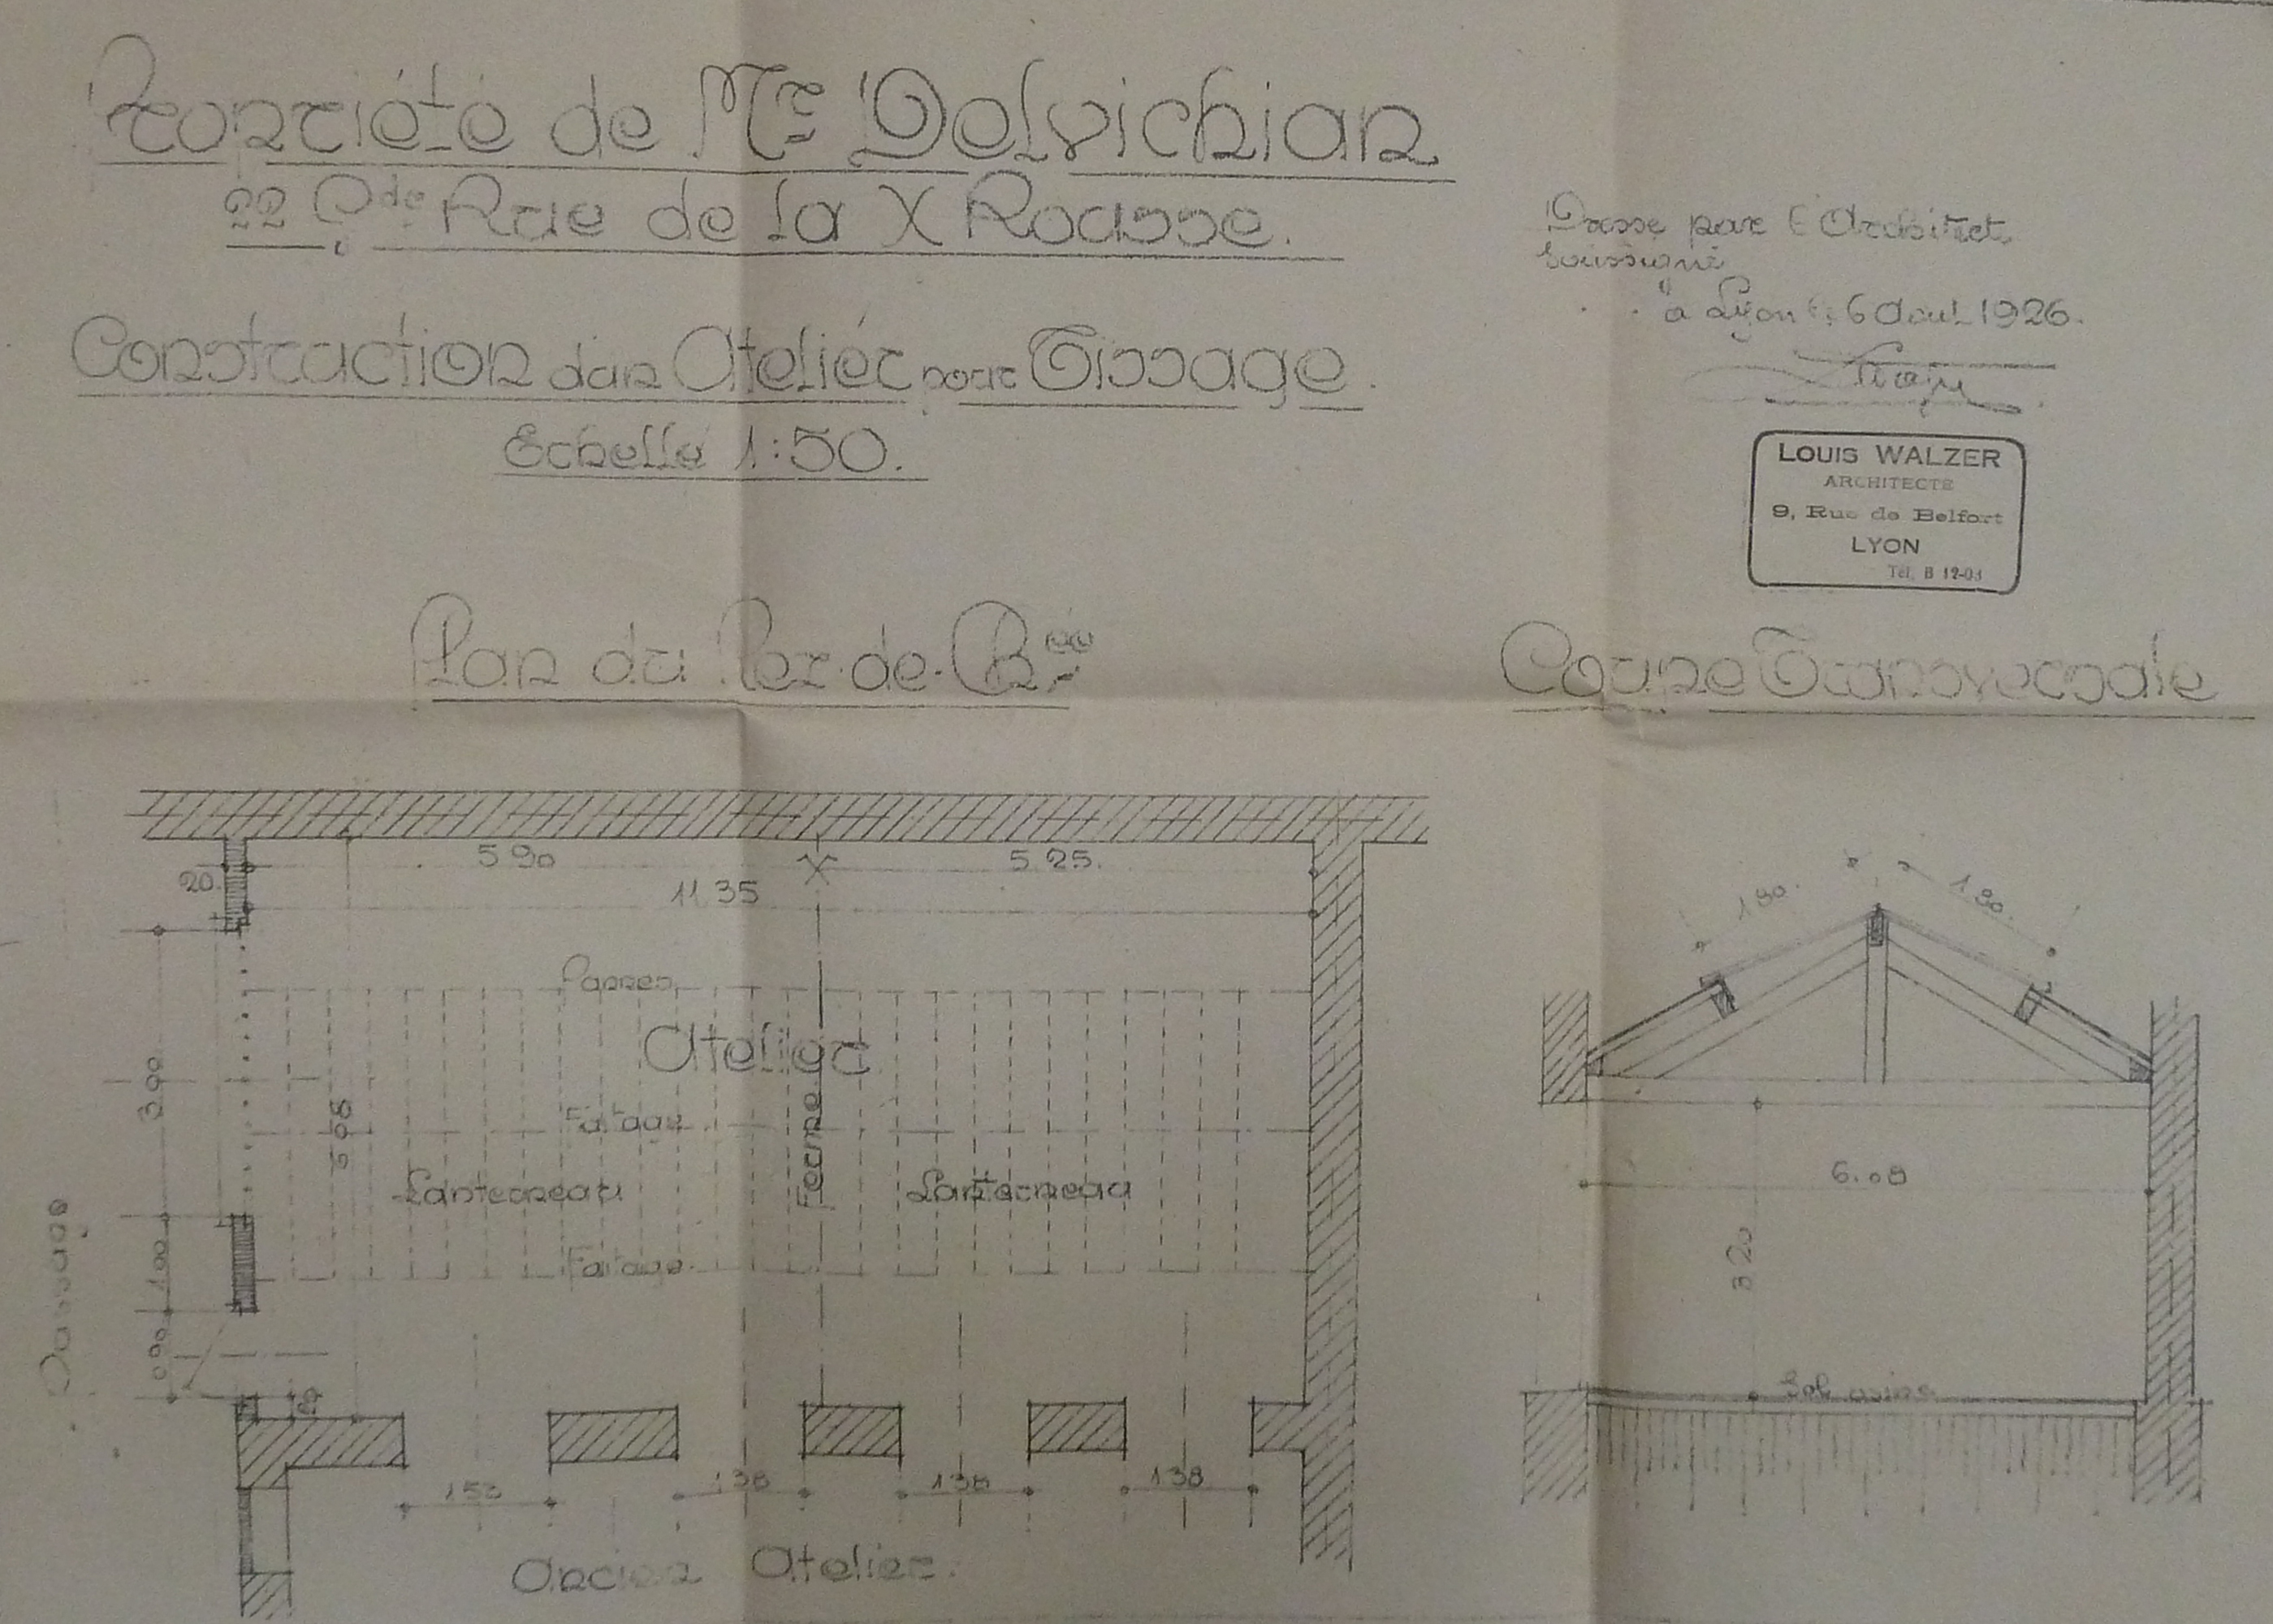 Propriété de Mr Delvichian
22 Gde Rue de la X Rousse.
Construction d'un Atelier pour Tissage.
Echelle 1:50.
Dressé par l'Architecte
soussigné
à Lyon le 6 Aout 1926.
LOUIS WALZER
ARCHITECTE
9, Rue de Belfort
LYON
Tél. B 12-01
Plan du Rez-de-Ch.ée
Coupe Transversale
5 90
5 25.
20.
11.35
1 90.
1 90.
Pannes
Atelier
3.00
Faitage
Ferme
Lanterneau
Lanterneau
6.08
3 20
Passage
1.00
Faitage
0.90
Sol usine
1 38
1 38
1 38
Ancien Atelier.